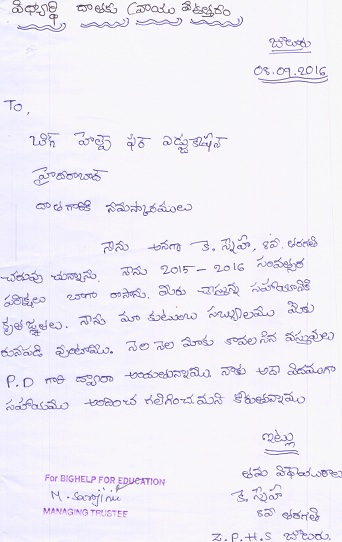 విద్యార్థి దాతకు వ్రాయు ఉత్తరం
బొలురు
08.09.2016
To,
బిగ్ హెల్ప్ ఫర్ ఎడ్యుకేషన్
హైదరాబాద్
దాతగారికి నమస్కారములు
నేను అనగా కె. స్నేహ, 8వ తరగతి
చదువు చున్నాను. నేను 2015 - 2016 సంవత్సర
పరీక్షలు బాగా రాసాను. మీరు చేస్తున్న సహాయానికి
కృతజ్ఞతలు. నేను మా కుటుంబ సభ్యులము మీకు
రుణపడి వుంటాము. నెల నెల మాకు కావలసిన వస్తువులు
P.D గారి ద్వారా అందుతున్నాయి నాకు అదే విధముగా
సహాయము అందించ గలిగించమని కోరుతున్నాము
ఇట్లు
తమ విధేయురాలు
కె. స్నేహ
8వ తరగతి
Z.P.H.S బొలురు.
For BIGHELP FOR EDUCATION
M. Sarojini
MANAGING TRUSTEE